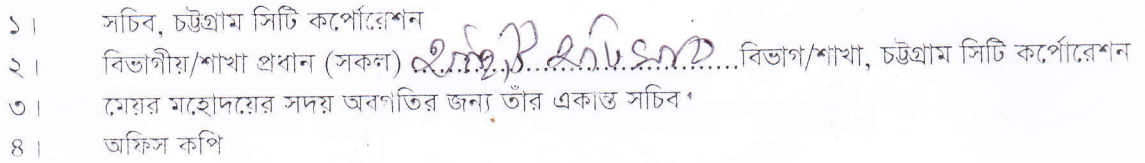 ১। সচিব, চট্টগ্রাম সিটি কর্পোরেশন
২। বিভাগীয়/শাখা প্রধান (সকল) .................... বিভাগ/শাখা, চট্টগ্রাম সিটি কর্পোরেশন
৩। মেয়র মহোদয়ের সদয় অবগতির জন্য তাঁর একান্ত সচিব
৪। অফিস কপি